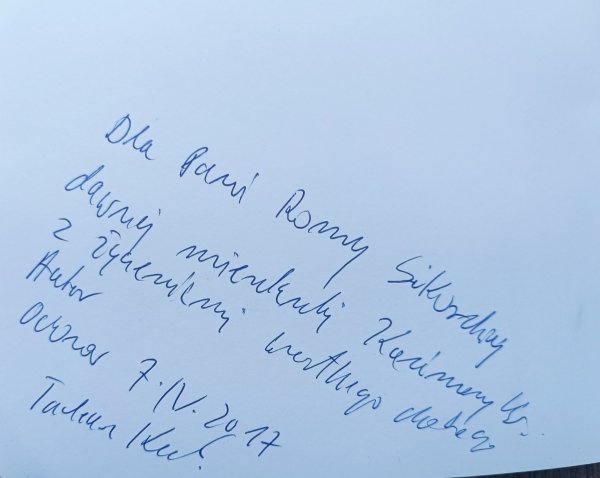 Dla Pani Romy Sikorskiej
dawnej mieszkanki Kazimierza
z życzeniami wszystkiego dobrego
Autor
7.IV.2017